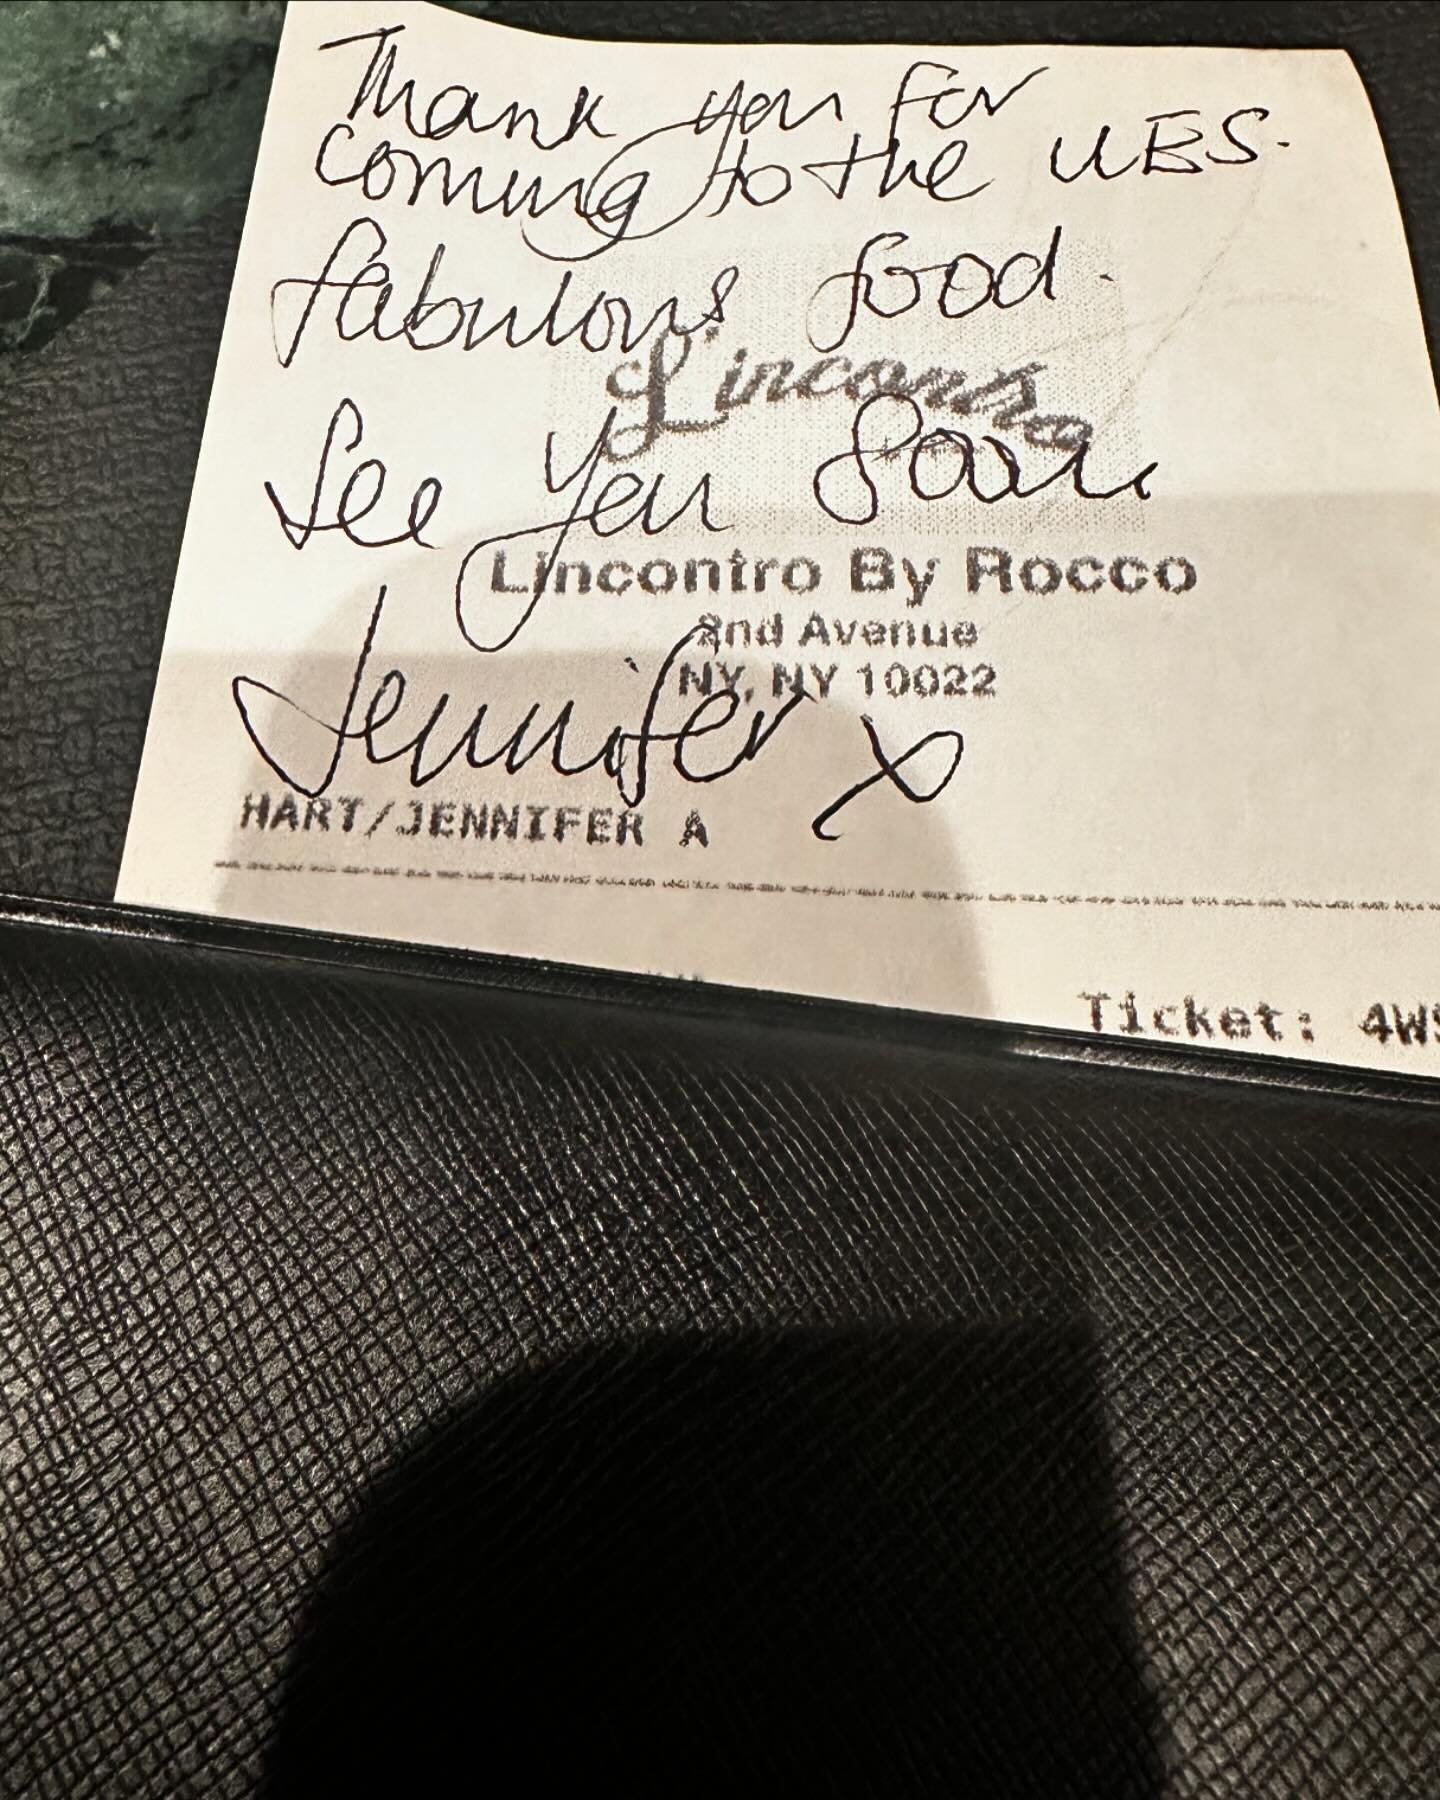 Thank you for
coming to the UES.
fabulous food.
L'incontro
See you soon
Lincontro By Rocco
2nd Avenue
NY, NY 10022
Jennifer x
HART/JENNIFER A
Ticket: 4W